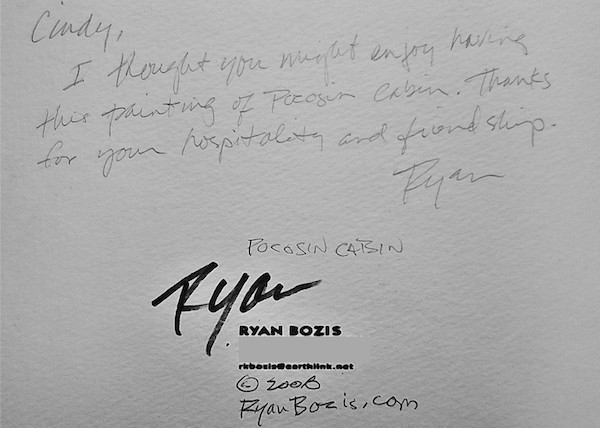 Cindy,
I thought you might enjoy having
this painting of Pocosin cabin. Thanks
for your hospitality and friendship.
Ryan
POCOSIN CABIN
Ryan
RYAN BOZIS
rkbozis@earthlink.net
© 2008
RyanBozis.com